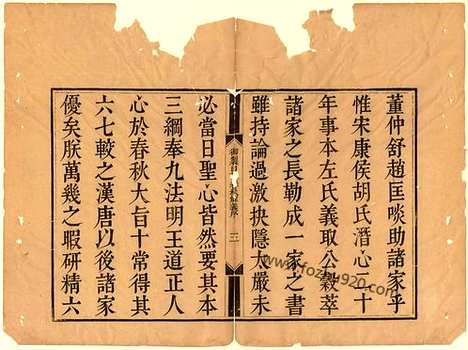 董仲舒趙匡啖助諸家乎
惟宋康侯胡氏潛心二十
年事本左氏義取公穀萃
諸家之長勒成一家之書
雖持論過激抉隱太嚴未
必當日聖心皆然要其本
三綱奉九法明王道正人
心於春秋大旨十常得其
六七較之漢唐以後諸家
優矣朕萬幾之暇研精六